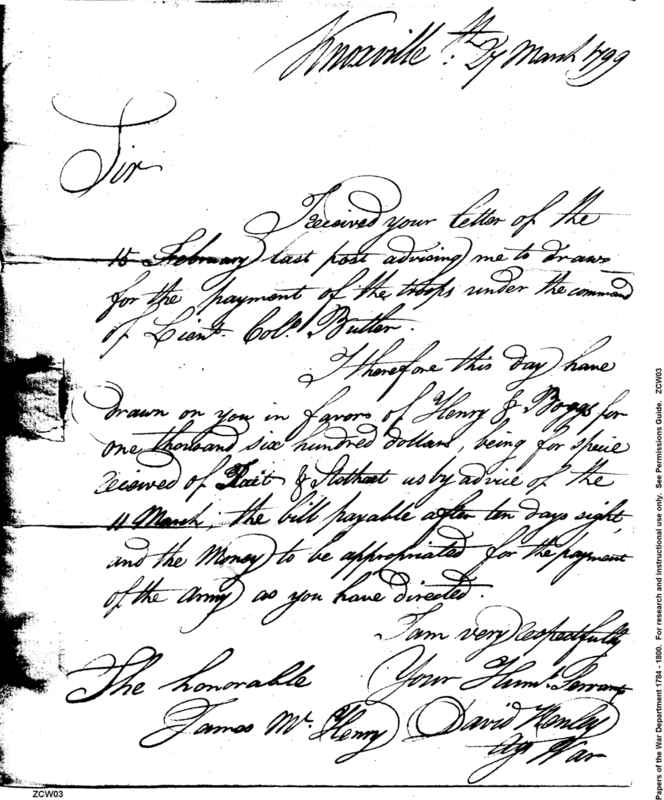 Knoxville 27th March 1799
Sir
I received your letter of the
15 February last post advising me to draw
for the payment of the troops under the command
of Lieut. Colo. Butler.
I therefore this day have
drawn on you in favor of Henry & Boggs for
one thousand six hundred dollars, being for specie
received of & Stothart us by advice of the
11 March, the bill payable after ten days sight,
and the Money to be appropriated for the payment
of the army as you have directed.
I am very respectfully
Your Humb. Servant
The honorable
James Mc. Henry
David Henley
Agt War
Papers of the War Department 1784 - 1800. For research and instructional use only. See Permissions Guide. ZCW03
ZCW03